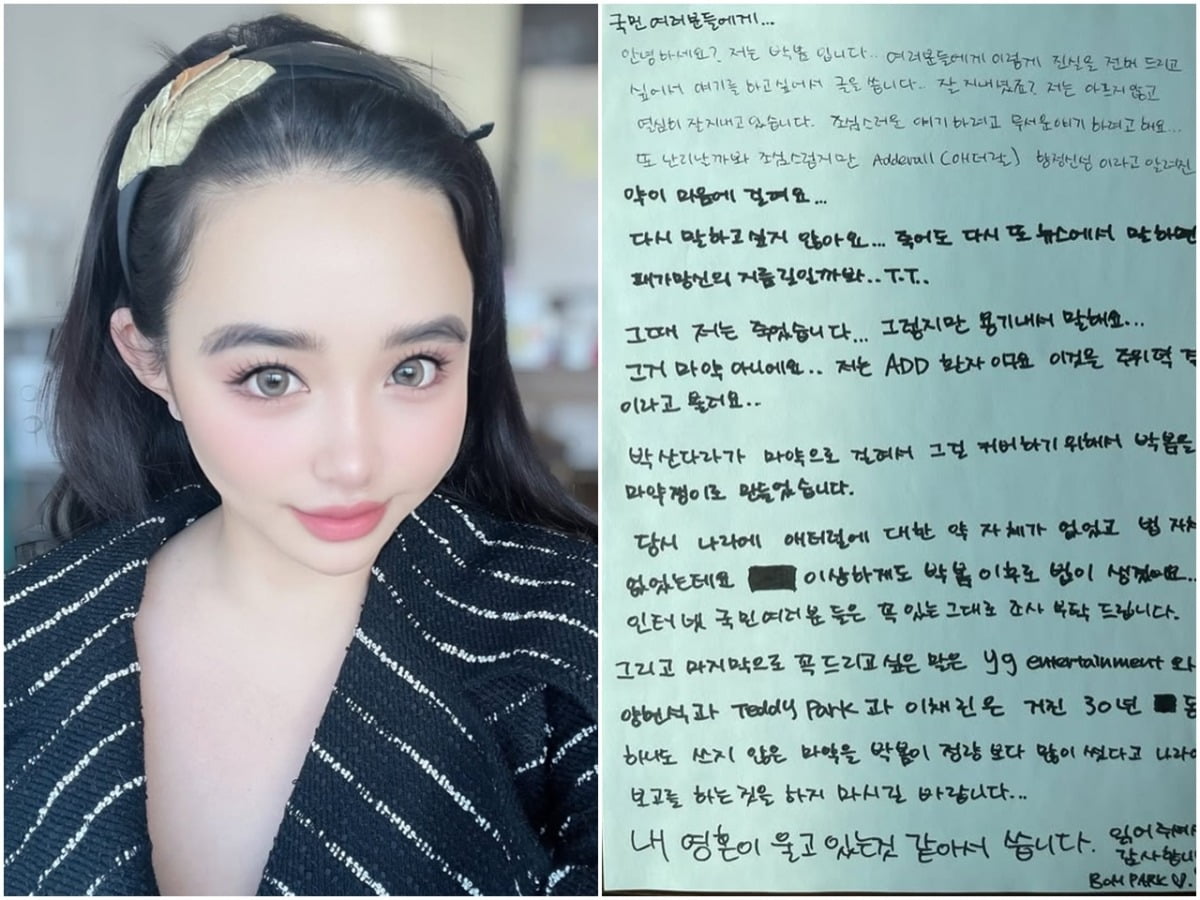 국민 여러분들에게...
안녕하세요? 저는 박봄 입니다.. 여러분들에게 이렇게 진실을 전해 드리고
싶어서 얘기를 하고싶어서 글을 씁니다.. 잘 지내셨죠? 저는 아프지않고
열심히 잘지내고 있습니다. 조심스러운 얘기 하려고 무서운얘기 하려고 해요...
또 난리날까봐 조심스럽지만 Adderall (애더랄) 향정신성 이라고 알려진
약이 마음에 걸려요...
다시 말하고싶지 않아요... 죽어도 다시 또 뉴스에서 말하면
패가망신의 지름길일까봐..T.T..
그때 저는 죽었습니다... 그렇지만 용기내서 말해요...
그거 마약 아니에요.. 저는 ADD 환자 이구요 이것을 주위력
이라고 불러요..
박산다라가 마약으로 걸려서 그걸 커버하기 위해서 박봄을
마약쟁이로 만들었습니다.
당시 나라에 애더럴에 대한 약 자체가 없었고 법 자체
없었는데요 이상하게도 박봄이후로 법이 생겼어요..
인터넷 국민여러분 들은 꼭 있는그대로 조사 부탁 드립니다.
그리고 마지막으로 꼭드리고 싶은 말은 yg entertainment 와
양현석과 Teddy Park 과 이채린은 거진 30년
하나도 쓰지 않은 마약을 박봄이 정량 보다 많이 썼다고 나라에
보고를 하는것을 하지 마시길 바랍니다...
내 영혼이 울고 있는것 같아서 씁니다. 읽어주셔
감사합니
BOM PARK ♡.